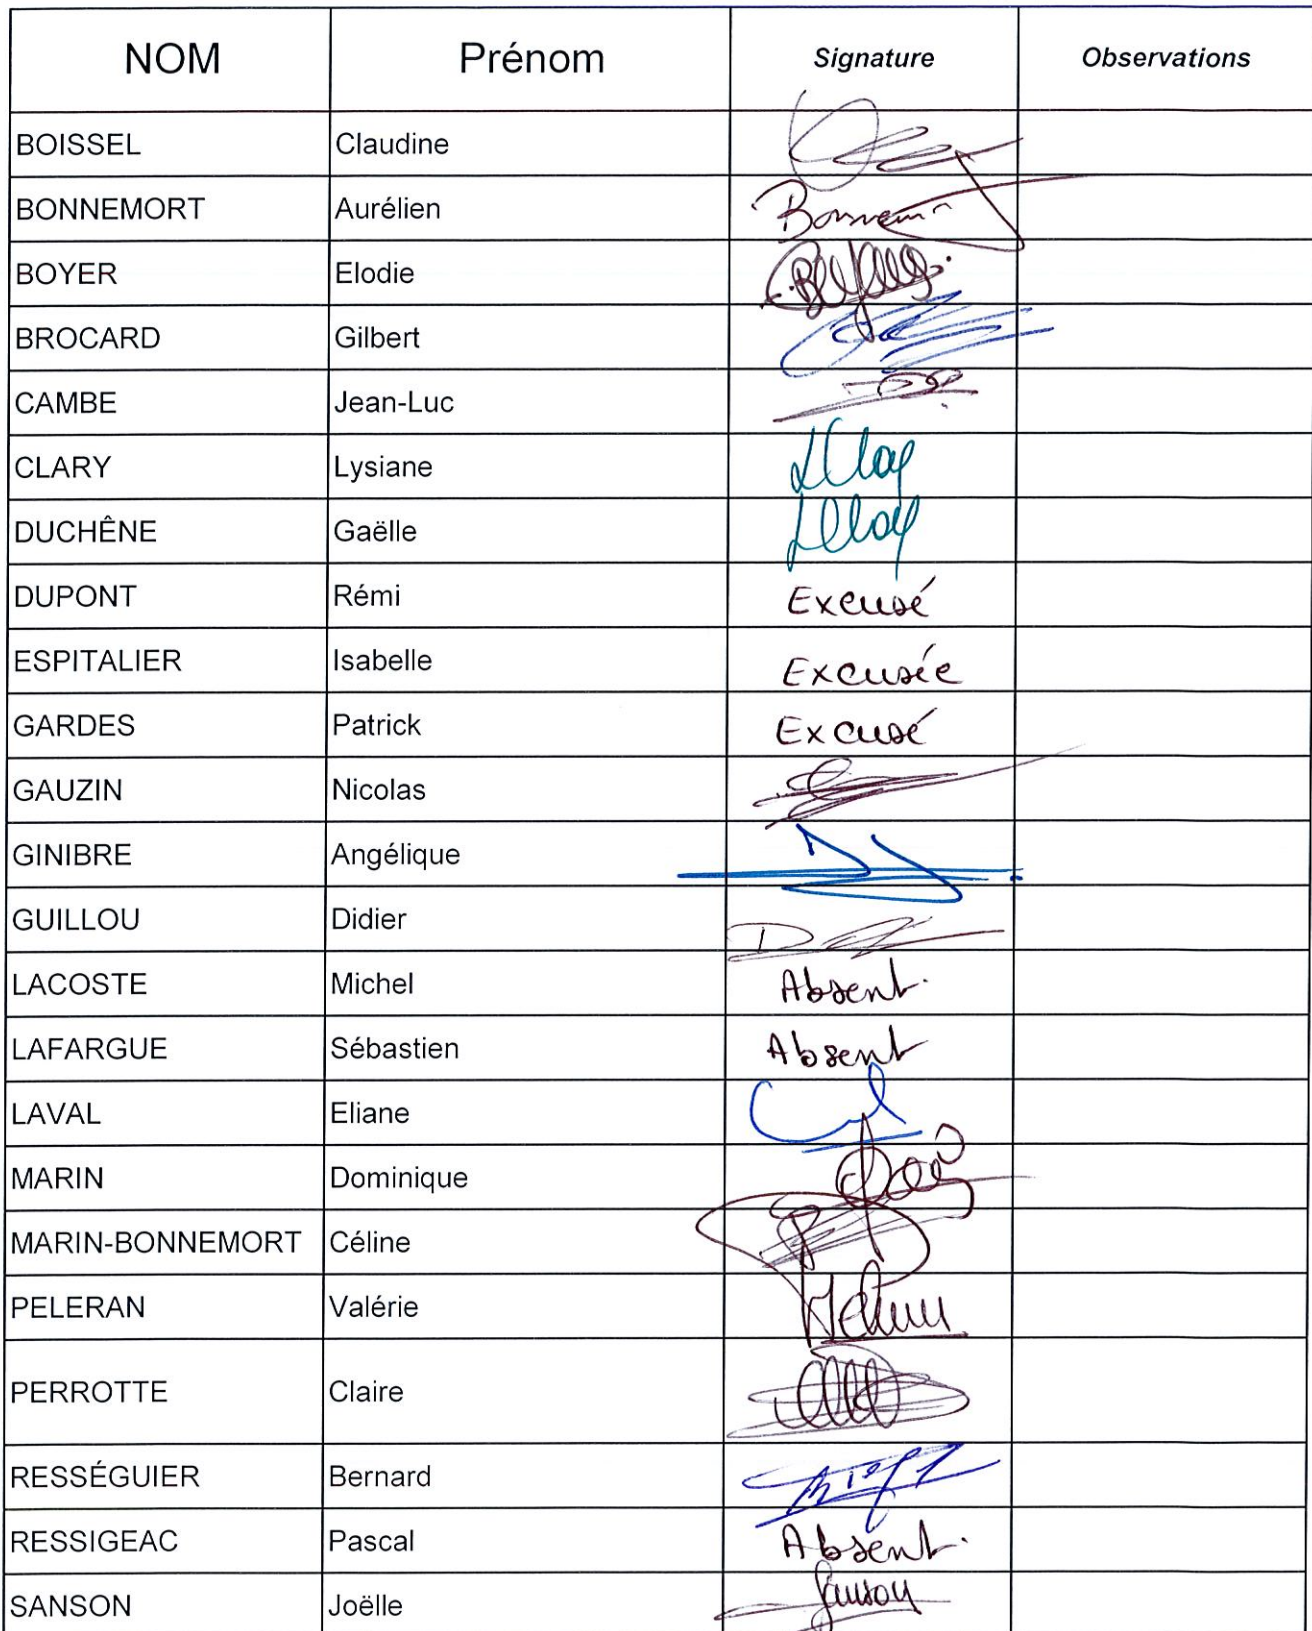 NOM Prénom Signature Observations
BOISSEL Claudine
BONNEMORT Aurélien
BOYER Elodie
BROCARD Gilbert
CAMBE Jean-Luc
CLARY Lysiane
DUCHÊNE Gaëlle
DUPONT Rémi Excusé
ESPITALIER Isabelle Excusée
GARDES Patrick Excusé
GAUZIN Nicolas
GINIBRE Angélique
GUILLOU Didier
LACOSTE Michel Absent.
LAFARGUE Sébastien Absent
LAVAL Eliane
MARIN Dominique
MARIN-BONNEMORT Céline
PELERAN Valérie
PERROTTE Claire
RESSÉGUIER Bernard
RESSIGEAC Pascal Absent.
SANSON Joëlle Sanson